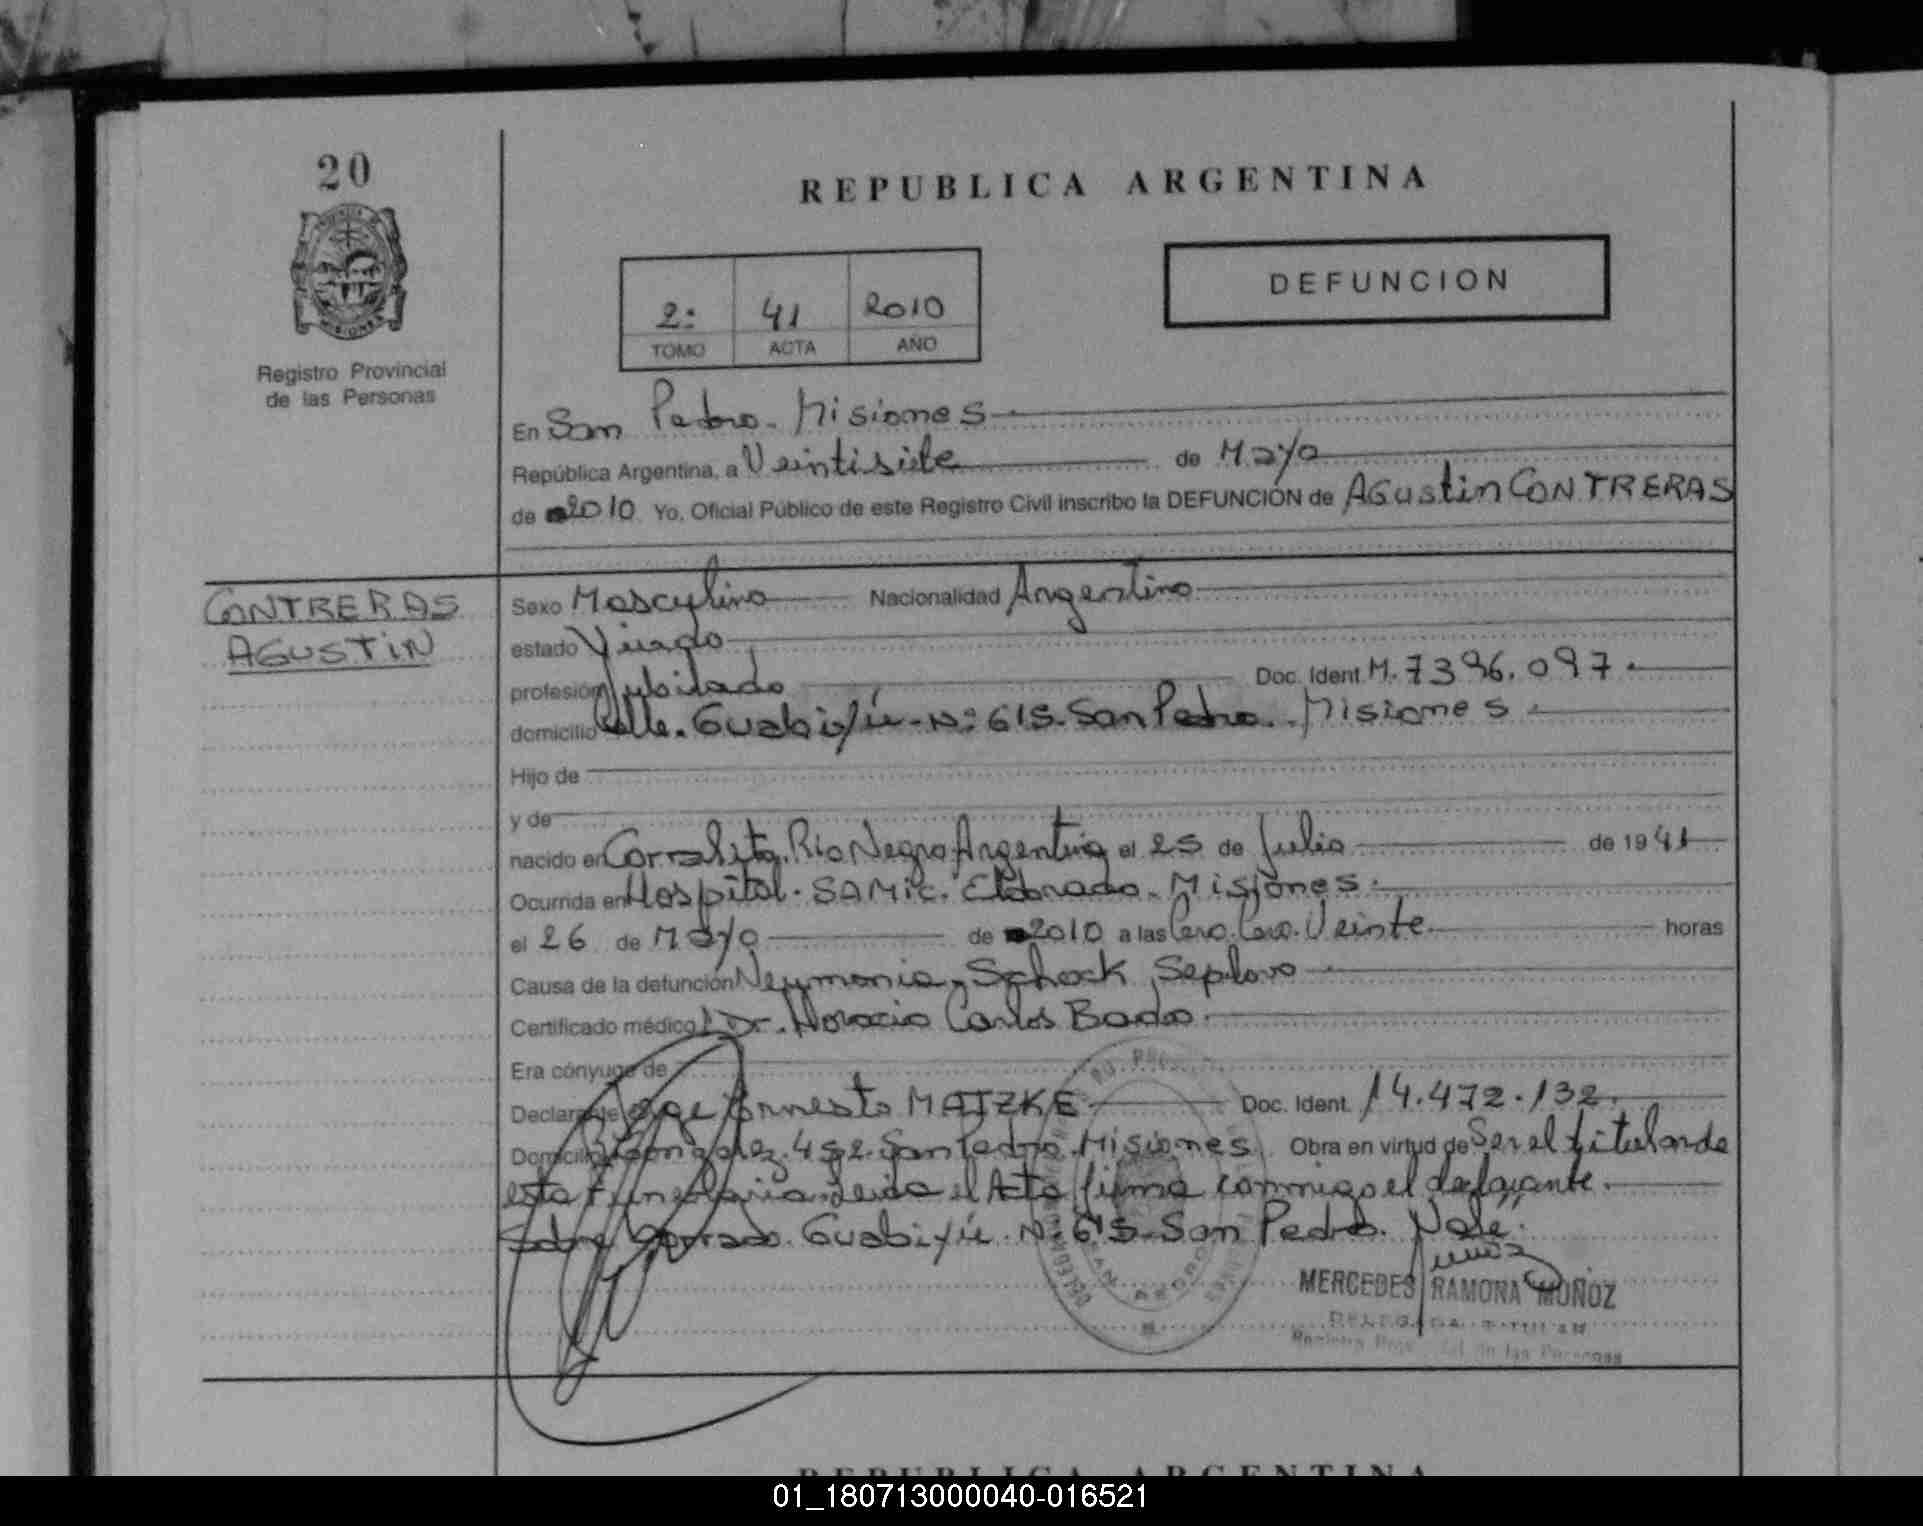 20
REPUBLICA ARGENTINA
2: 41 2010
TOMO ACTA AÑO
DEFUNCION
MISIONES
Registro Provincial
de las Personas
En San Pedro. Misiones
República Argentina, a Veintisiete de Mayo
de 2010 Yo, Oficial Público de este Registro Civil inscribo la DEFUNCIÓN de AGustin CONTRERAS
CONTRERAS
AGUSTIN
Sexo Masculino Nacionalidad Argentino
estado Viudo
profesión Jubilado Doc. Ident. M. 7396.097.
domicilio Calle. Guabiyú. N: 615. San Pedro. Misiones
Hijo de
y de
nacido en Corralito. Rio Negro Argentina el 25 de Julio de 1941
Ocurrida en Hospital. SAMic. Eldorado. Misiones.
el 26 de Mayo de 2010 a las Cero. Cero. Veinte horas
Causa de la defunción Neumonia, Schock Septovo
Certificado médico Dr. Horacio Carlos Bado.
Era cónyuge de
Declarante Jorge Ernesto MATZKE Doc. Ident. 14.472.132.
Domicilio San Pedro. Misiones Obra en virtud de Ser el titular de
esta Funeraria. Leida el Acta firma conmigo el
Sobre borrado. Guabiyú. N: 615. San Pedro. Vale.
MERCEDES RAMONA MUÑOZ
DELEGADA TITULAR
Registro Provincial de las Personas
REPUBLICA ARGENTINA
01_180713000040-016521